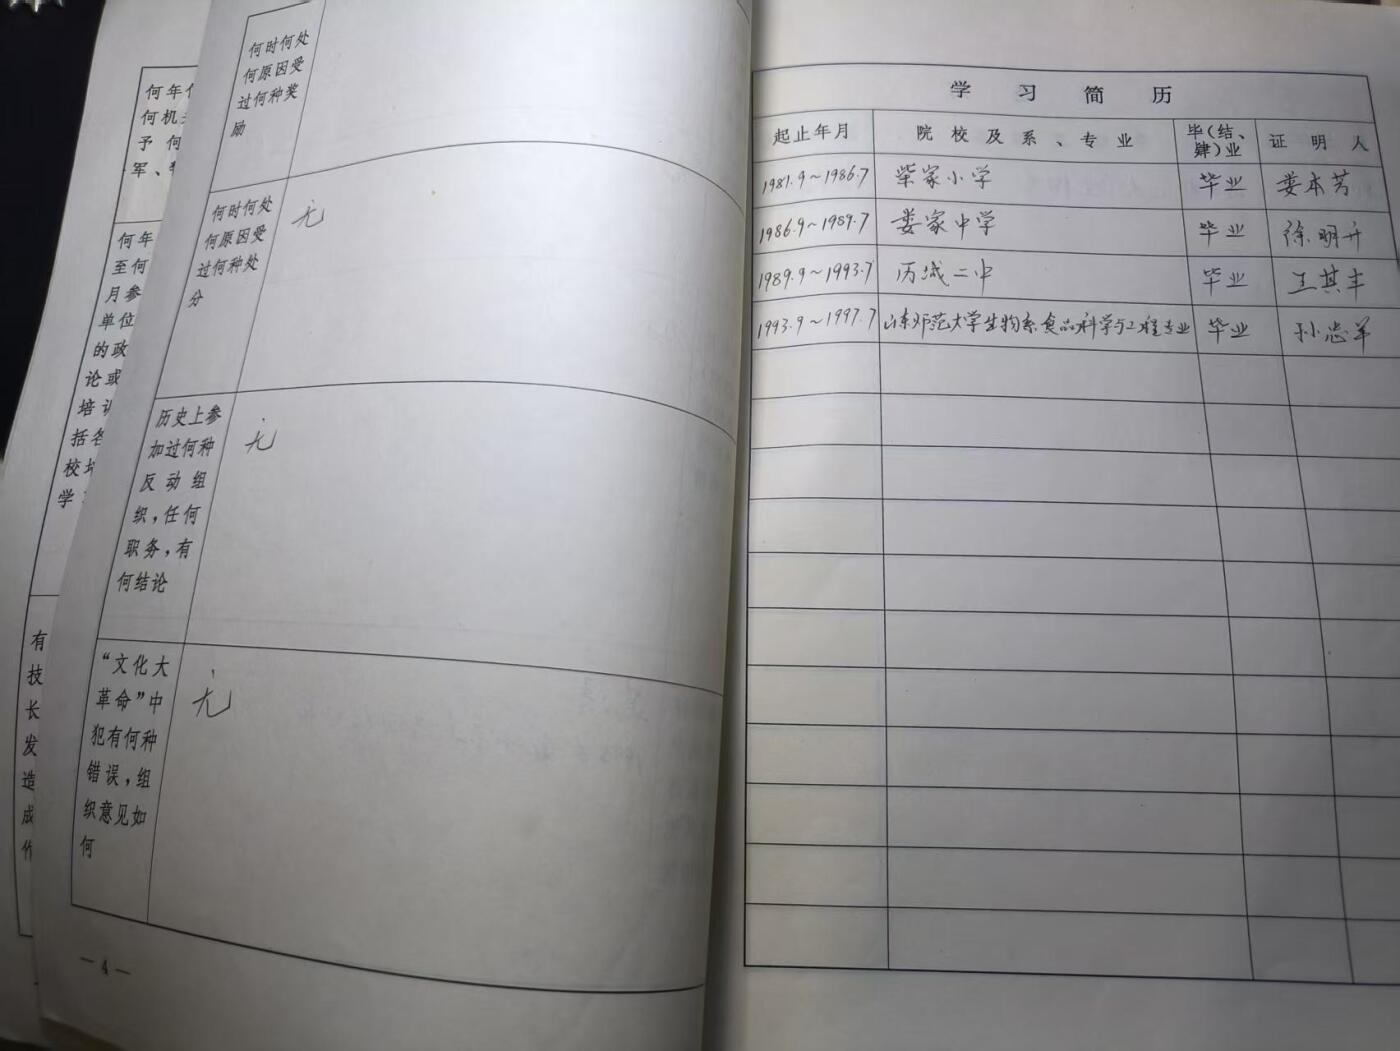 何年
何机
予何
军、
何年
至何
月参
单位
的政
论或
培训
括各
校培
学
有
技
长
发
造
成
作
何时何处
何原因受
过何种奖
励
何时何处
何原因受
过何种处
分
无
历史上参
加过何种
反动组
织，任何
职务，有
何结论
无
“文化大
革命”中
犯有何种
错误，组
织意见如
何
无
— 4 —
学习简历
起止年月 院校及系、专业 毕(结、肄)业 证明人
1981.9～1986.7 柴家小学 毕业 娄本芳
1986.9～1989.7 娄家中学 毕业 徐明升
1989.9～1993.7 丙城二中 毕业 王其丰
1993.9～1997.7 山东师范大学生物系食品科学与工程专业 毕业 孙忠军